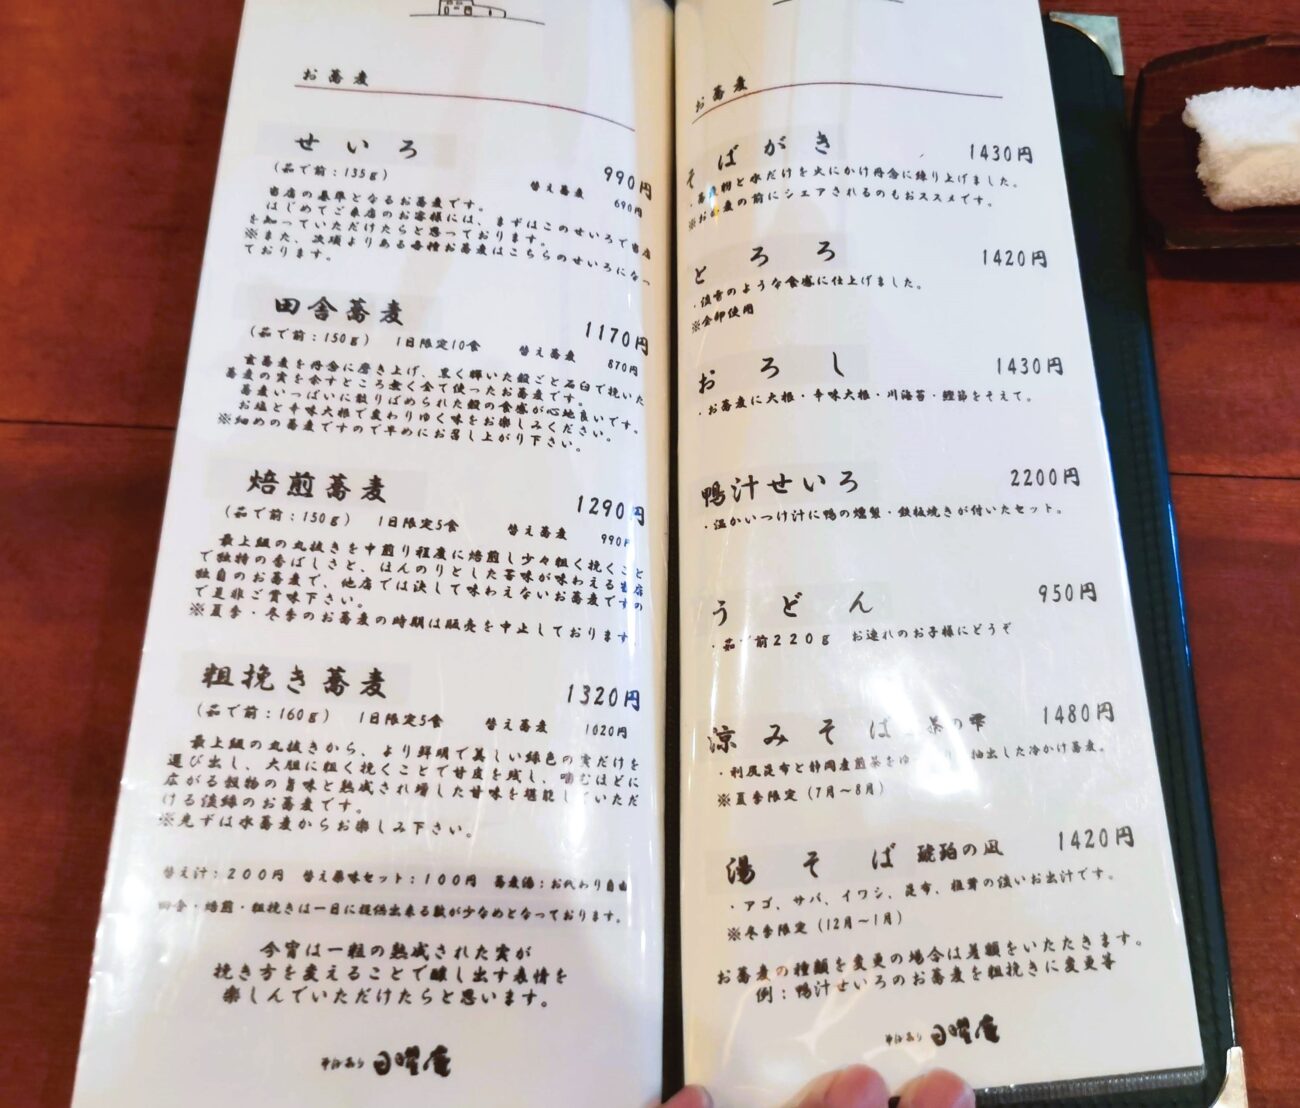 お蕎麦
せいろ
990円
(茹で前：135g)
替え蕎麦 690円
当店の基準となるお蕎麦です。
はじめてご来店のお客様には、まずはこのせいろで当店
を知っていただけたらと思っております。
※また、次項よりある各種お蕎麦はこちらのせいろになっ
ております。
田舎蕎麦
1170円
(茹で前：150g) 1日限定10食 替え蕎麦 870円
玄蕎麦を丹念に磨き上げ、黒く輝いた殻ごと石臼で挽いた
蕎麦の実を余すところ無く全て使ったお蕎麦です。
蕎麦いっぱいに散りばめられた殻の食感が心地良いです。
お塩と辛味大根で変わりゆく味をお楽しみください。
※細めの蕎麦ですので早めにお召し上がり下さい。
焙煎蕎麦
1290円
(茹で前：150g) 1日限定5食 替え蕎麦 990円
最上級の丸抜きを中煎り程度に焙煎し少々粗く挽くこと
で独特の香ばしさと、ほんのりとした苦味が味わえる当店
独自のお蕎麦で、他店では決して味わえないお蕎麦ですの
で是非ご賞味下さい。
※夏季・冬季のお蕎麦の時期は販売を中止しております。
粗挽き蕎麦
1320円
(茹で前：160g) 1日限定5食 替え蕎麦 1020円
最上級の丸抜きから、より鮮明で美しい緑色の実だけを
選び出し、大胆に粗く挽くことで甘皮を残し、噛むほどに
広がる穀物の旨味と熟成され増した甘味を堪能していただ
ける淡緑のお蕎麦です。
※先ずは水蕎麦からお楽しみ下さい。
替え汁：200円 替え薬味セット：100円 蕎麦湯：お代わり自由
田舎・焙煎・粗挽きは一日に提供出来る数が少なめとなっております。
今宵は一粒の熟成された実が
挽き方を変えることで醸し出す表情を
楽しんでいただけたらと思います。
日曜庵
お蕎麦
そばがき 1430円
・蕎麦物と水だけを火にかけ丹念に練り上げました。
※お蕎麦の前にシェアされるのもおススメです。
とろろ 1420円
・淡雪のような食感に仕上げました。
※全卵使用
おろし 1430円
・お蕎麦に大根・辛味大根・川海苔・鰹節をそえて。
鴨汁せいろ 2200円
・温かいつけ汁に鴨の燻製・鉄板焼きが付いたセット。
うどん 950円
・茹で前220g お連れのお子様にどうぞ
涼みそば 茶の雫 1480円
・利尻昆布と静岡産煎茶をゆ 抽出した冷かけ蕎麦。
※夏季限定(7月～8月)
湯そば 琥珀の凪 1420円
・アゴ、サバ、イワシ、昆布、椎茸の淡いお出汁です。
※冬季限定(12月～1月)
お蕎麦の種類を変更の場合は差額をいただきます。
例：鴨汁せいろのお蕎麦を粗挽きに変更等
日曜庵